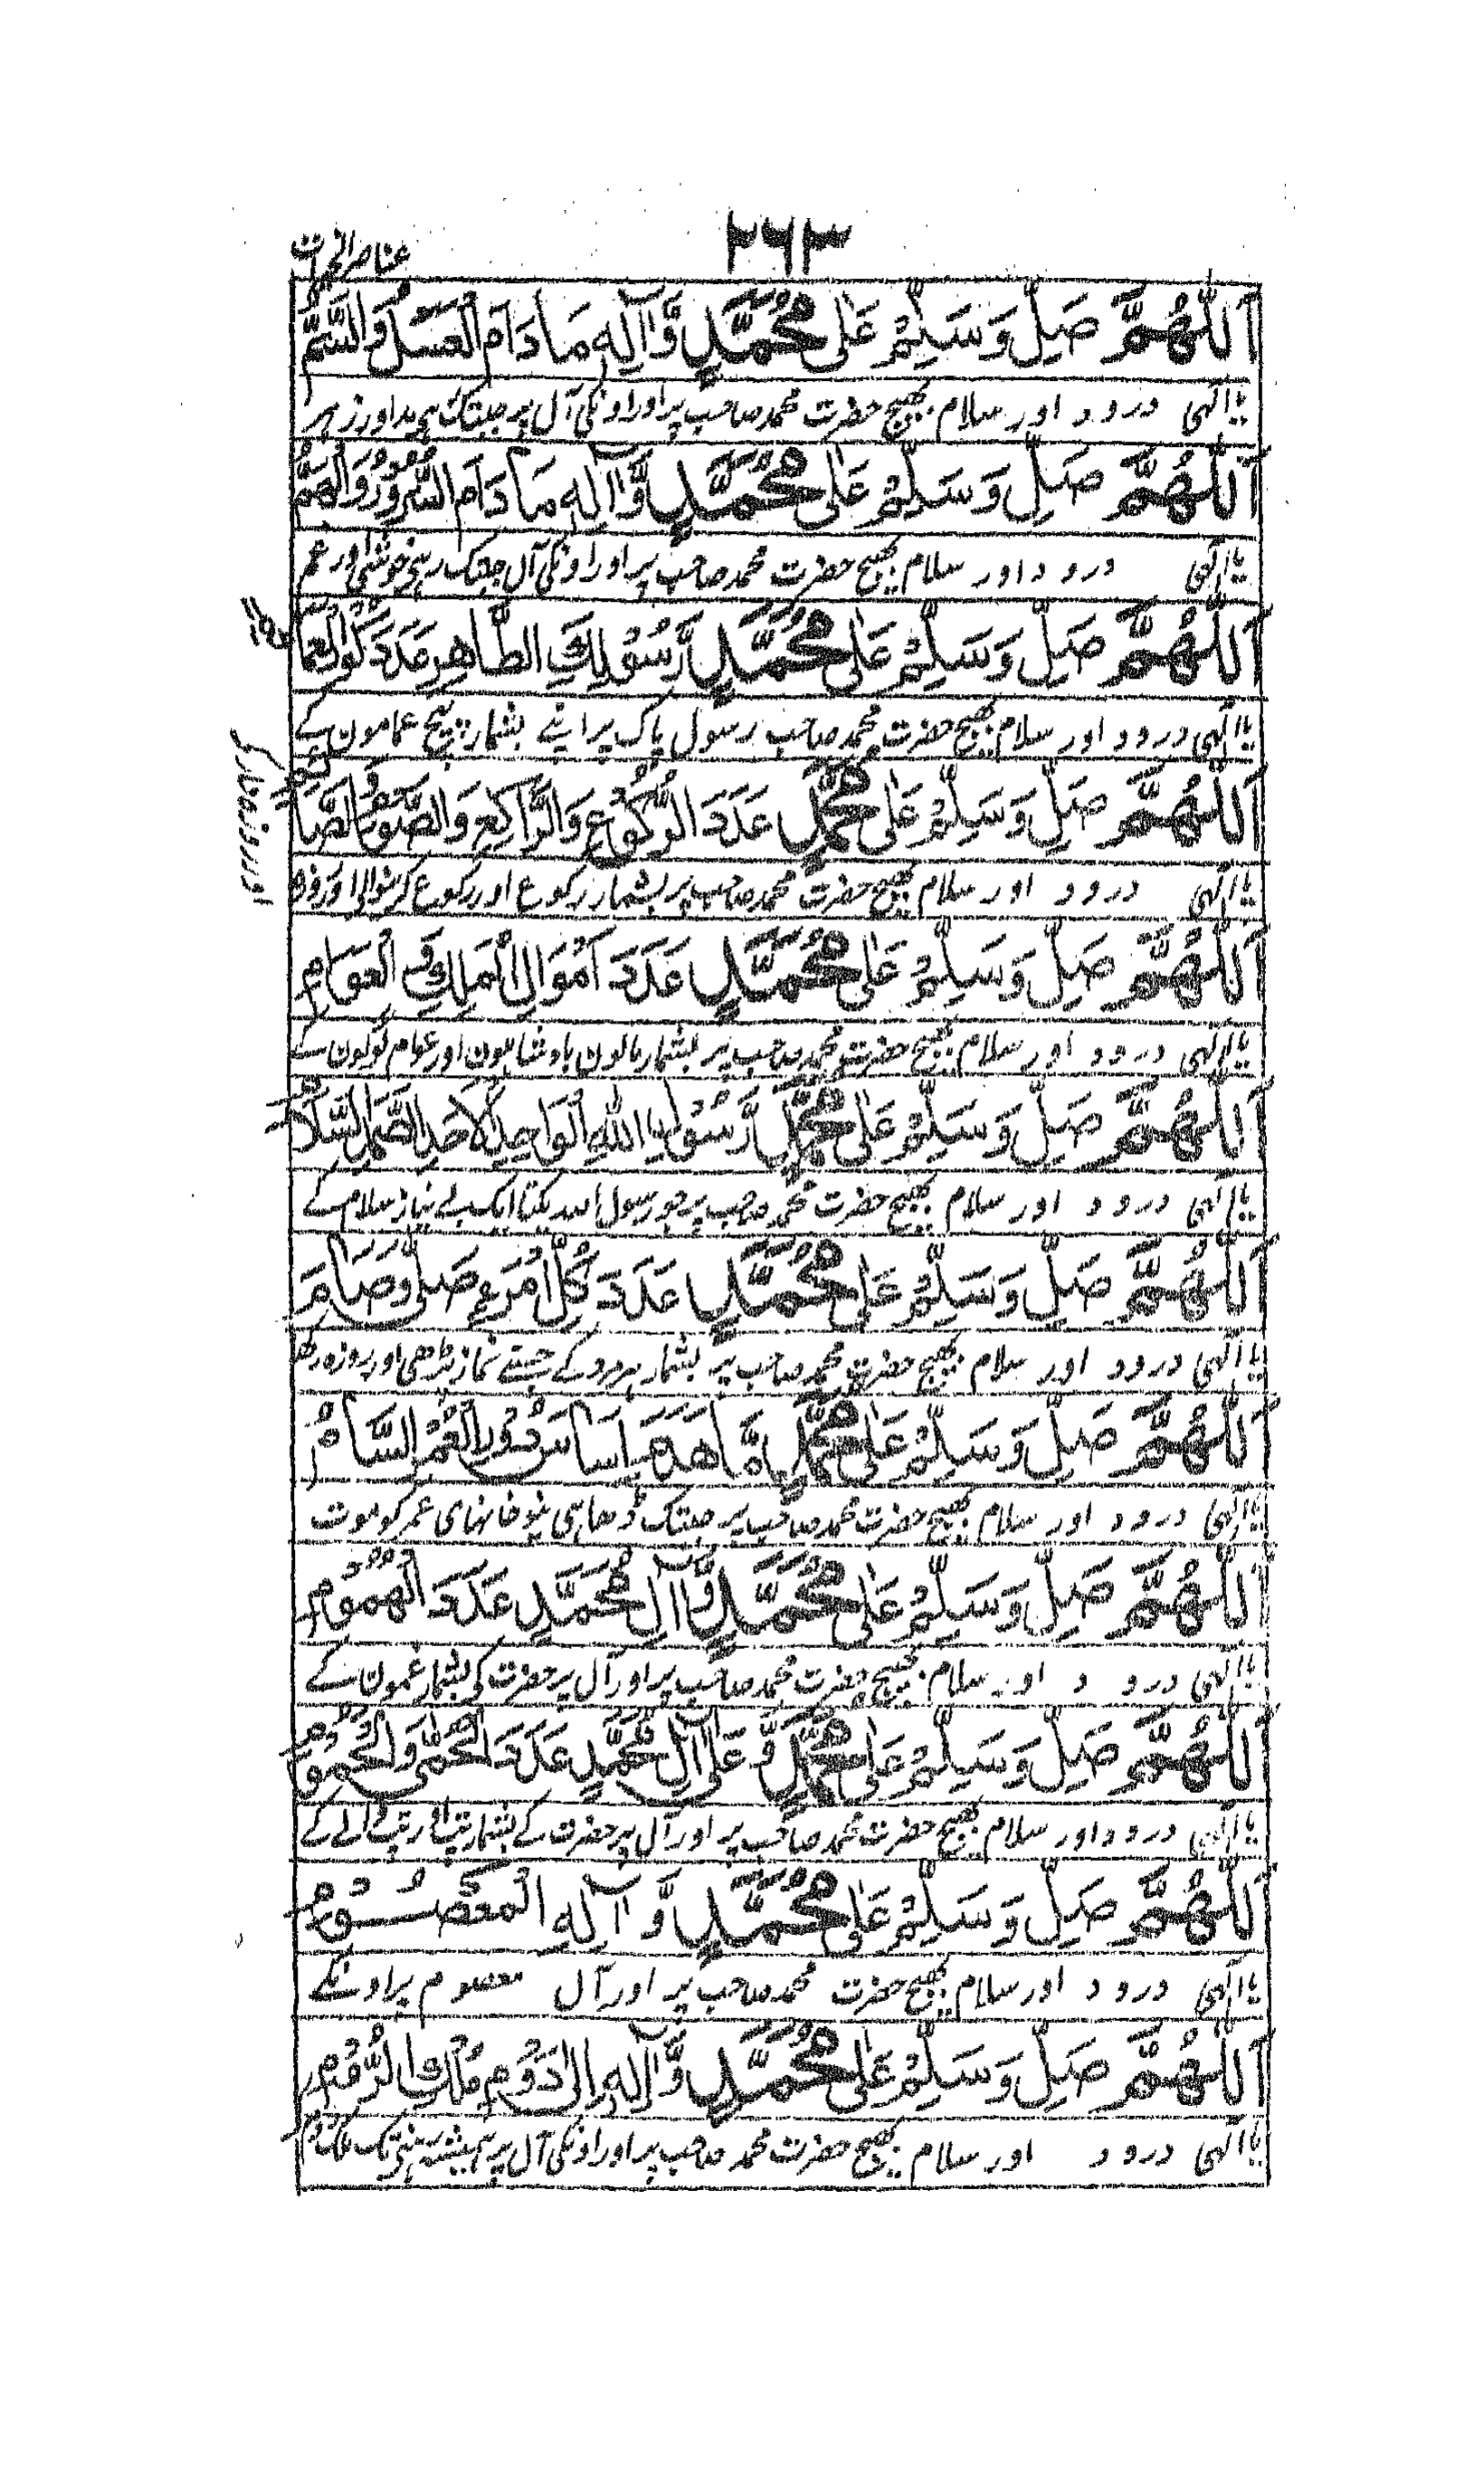 ۲۶۳
عناصر الخيرات
اَللّٰهُمَّ صَلِّ وَسَلِّمْ عَلٰى مُحَمَّدٍ وَّآلِهٖ مَا دَامَ الْعَسَلُ وَالسَّمُّ
یا الٰہی درود اور سلام بھیج حضرت محمد صاحب پر اور اونکی آل پر جبتک ہی شہد اور زہر
اَللّٰهُمَّ صَلِّ وَسَلِّمْ عَلٰى مُحَمَّدٍ وَّآلِهٖ مَا دَامَ السُّرُوْرُ وَالْهَمُّ
یا الٰہی درود اور سلام بھیج حضرت محمد صاحب پر اور اونکی آل جبتک رہے خوشی اور غم
اَللّٰهُمَّ صَلِّ وَسَلِّمْ عَلٰى مُحَمَّدٍ رَّسُوْلِكَ الطَّاهِرِ عَدَدَ
یا الٰہی درود اور سلام بھیج حضرت محمد صاحب رسول پاک پر اپنے بشمار پیچ عمامون کے
اَللّٰهُمَّ صَلِّ وَسَلِّمْ عَلٰى مُحَمَّدٍ عَدَدَ الرُّكُوْعِ وَالرَّاكِعِ وَالصَّوْمِ وَالصَّائِمِ
یا الٰہی درود اور سلام بھیج حضرت محمد صاحب پر بشمار رکوع اور رکوع کرنیوالی اور روزہ
اور روزہ دار کے
اَللّٰهُمَّ صَلِّ وَسَلِّمْ عَلٰى مُحَمَّدٍ عَدَدَ اَمْوَالِ الْمَلِكِ وَ الْعَوَامِ
یا الٰہی درود اور سلام بھیج حضرت محمد صاحب پر بشمار مالون بادشاہون اور عوام لوگون کے
اَللّٰهُمَّ صَلِّ وَسَلِّمْ عَلٰى مُحَمَّدٍ رَّسُوْلِ اللّٰهِ الْوَاحِدِ الْاَحَدِ الصَّمَدِ السَّلَامِ
یا الٰہی درود اور سلام بھیج حضرت محمد صاحب پر جو رسول اللہ یکتا ایک بے نیاز سلام کے
اَللّٰهُمَّ صَلِّ وَسَلِّمْ عَلٰى مُحَمَّدٍ عَدَدَ كُلِّ امْرَءٍ صَلّٰى وَصَامَ
یا الٰہی درود اور سلام بھیج حضرت محمد صاحب پر بشمار ہر مرد کے جسنے نماز پڑھی اور روزہ رکھا
اَللّٰهُمَّ صَلِّ وَسَلِّمْ عَلٰى مُحَمَّدٍ مَّا هَدَمَ اَسَاسَ دُوْرِ الْعُمْرِ السَّامُ
یا الٰہی درود اور سلام بھیج حضرت محمد صاحب پر جبتک ڈھاہی نیو خانہای عمر کو موت
اَللّٰهُمَّ صَلِّ وَسَلِّمْ عَلٰى مُحَمَّدٍ وَّآلِ مُحَمَّدٍ عَدَدَ الْهُمُوْمِ
یا الٰہی درود اور سلام بھیج حضرت محمد صاحب پر اور آل پر حضرت کی بشمار غمون کے
اَللّٰهُمَّ صَلِّ وَسَلِّمْ عَلٰى مُحَمَّدٍ وَّعَلٰى آلِ مُحَمَّدٍ عَدَدَ الْحُمّٰى وَالْمَحْمُوْمِ
یا الٰہی درود اور سلام بھیج حضرت محمد صاحب پر اور آل پر حضرت کے بشمار تپ اور تپ والے کے
اَللّٰهُمَّ صَلِّ وَسَلِّمْ عَلٰى مُحَمَّدٍ وَّآلِهِ الْمَعْصُوْمِ
یا الٰہی درود اور سلام بھیج حضرت محمد صاحب پر اور آل معصوم پر اونکے
اَللّٰهُمَّ صَلِّ وَسَلِّمْ عَلٰى مُحَمَّدٍ وَّآلِهٖ اِلٰى دَوْمِ مُلْكِ الرُّوْمِ
یا الٰہی درود اور سلام بھیج حضرت محمد صاحب پر اور اونکی آل پر ہمیشہ رہنی تک ملک روم